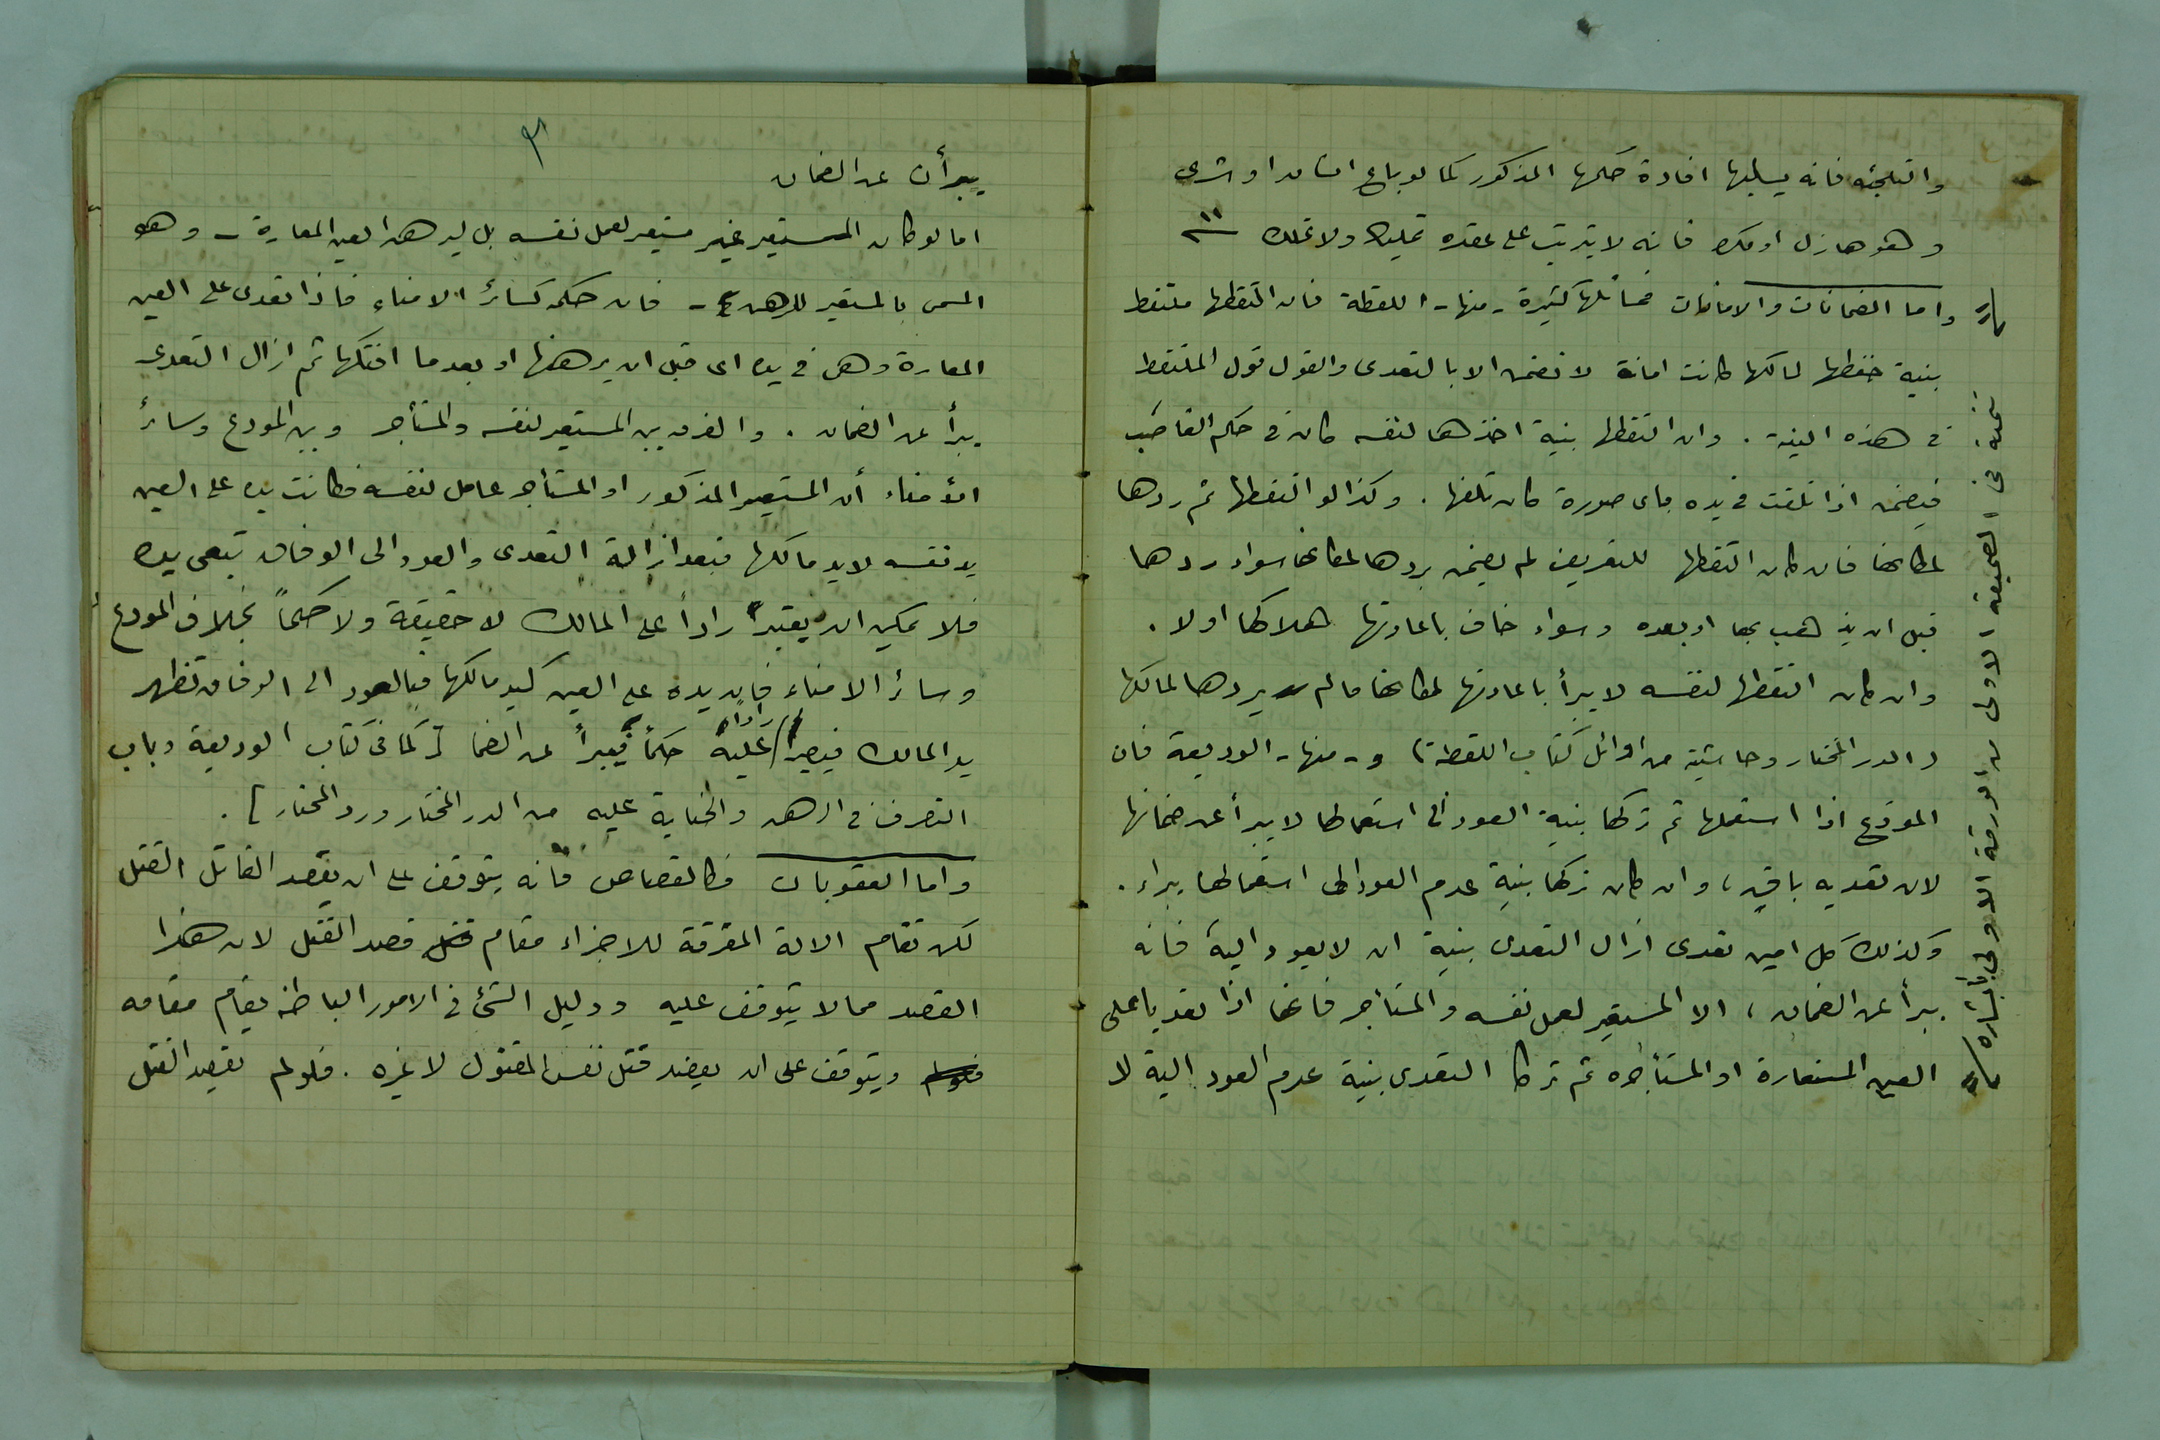 والتلجئه فانه يسلبها افادة حكمها المذكور كما لو باع انسان او شرى
وهو هازل او مكره فانه لا يترتب على عقده تمليك ولا تملك
واما الضمانات والامانات فمسائلها كثيرة - منها - اللقطة فان التقطها ملتقط
بنية حفظها لمالكها كانت امانة لا تضمن الا بالتعدى والقول قول الملتقط
فى هذه النية . وان التقطها بنية اخذها لنفسه كان فى حكم الغاصب
فيضمن اذا تلفت فى يده باى صورة كان تلفها . وكذا لو التقطها ثم ردها
لمكانها فان كان التقطها للتعريف لم يضمن بردها لمكانها سواء ردها
قبل ان يذهب بها او بعده وسواء خاف باعادتها هلاكها اولا .
وان كان التقطها لنفسه لا يبرأ باعادتها لمكانها ما لم يردها لمالكها
(الدر المختار وحاشيته من اوائل كتاب اللقطة) و- منها - الوديعة فان
المودع اذا استعملها ثم تركها بنية العود الى استعمالها لا يبرأ عن ضمانها
لان تعديه باقٍ ، وان كان تركها بنية عدم العود الى استعمالها يبراء .
وكذلك كل امين تعدى ازال التعدى بنية ان لا يعود اليه فانه
يبرأ عن الضمان ، الا المستعير لعمل نفسه والمستأجر فانهما اذا تعديا على
العين المستعارة او المستأجره ثم تركا التعدى بنية عدم العود اليه لا
تتمة فى الصحيفة الاولى من الورقة الاولى
٣
يبرأن عن الضمان
اما لو كان المستعير غير مستعير لعمل نفسه بل ليرهن العين المعارة - وهو
المسمى بالمستعير للرهن - فان حكمه كسائر الامناء فاذا تعدى على العين
المعارة وهى فى يده اى قبل ان يرهنها او بعد ما افتكها ثم ازال التعدى
يبرأ عن الضمان . والفرق بين المستعير لنفسه والمستأجر وبين المودع وسائر
الأمناء أن المستعير المذكور او المستأجر عامل لنفسه فكانت يده على العين
يد نفسه لا يد مالكها فبعد ازالة التعدى والعود الى الوفاق تبقى يده
فلا يمكن ان يعتبر راداً على المالك لا حقيقة ولا حكماً بخلاف المودع
وسائر الامناء فان يده على العين كيد مالكها فبالعود الى الوفاق تظهر
يد المالك فيصير راداً عليه حكماً فيبرأ عن الضمان [كما فى كتاب الوديعة وباب
التصرف فى الرهن والجناية عليه من الدر المختار ورد المحتار] .
واما العقوبات فكالقصاص فانه يتوقف على ان يقصد القاتل القتل
لكن تقام الالة المفرقة للاجزاء مقام قصد القتل لان هذا
القصد مما لا يتوقف عليه ودليل الشئ فى الامور الباطنه يقام مقامه
ويتوقف على ان يقصد قتل نفس المقتول لا غيره . فلو لم يقصد القتل